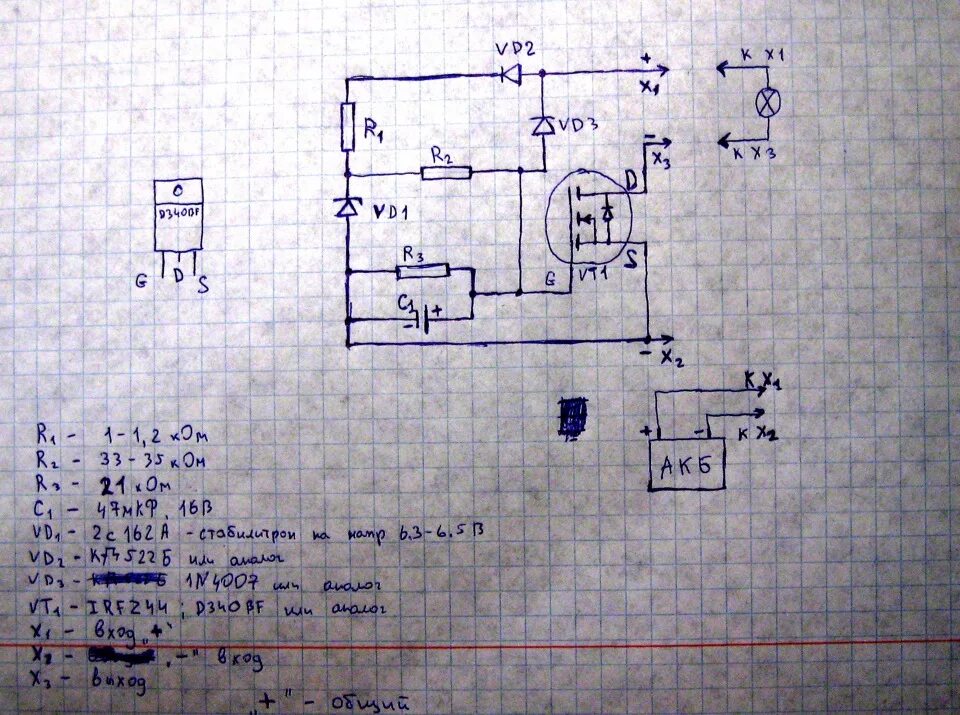 VD2
+
X1
К X1
R1
VD3
R2
-
X3
К X3
D340BF
VD1
D
G D S
R3
S
G
VT1
C1
- +
- X2
К X1
+ -
К X2
АКБ
R1 - 1-1,2 кОм
R2 - 33-35 кОм
R3 - 21 кОм
C1 - 47мкФ, 16В
VD1 - 2с162А - стабилитрон на напр 6.3-6.5В
VD2 - КД522Б или аналог
VD3 - 1N4007 или аналог
VT1 - IRFZ44; D340BF или аналог
X1 - вход „+"
X2 - „-" вход
X3 - выход
„+" - общий